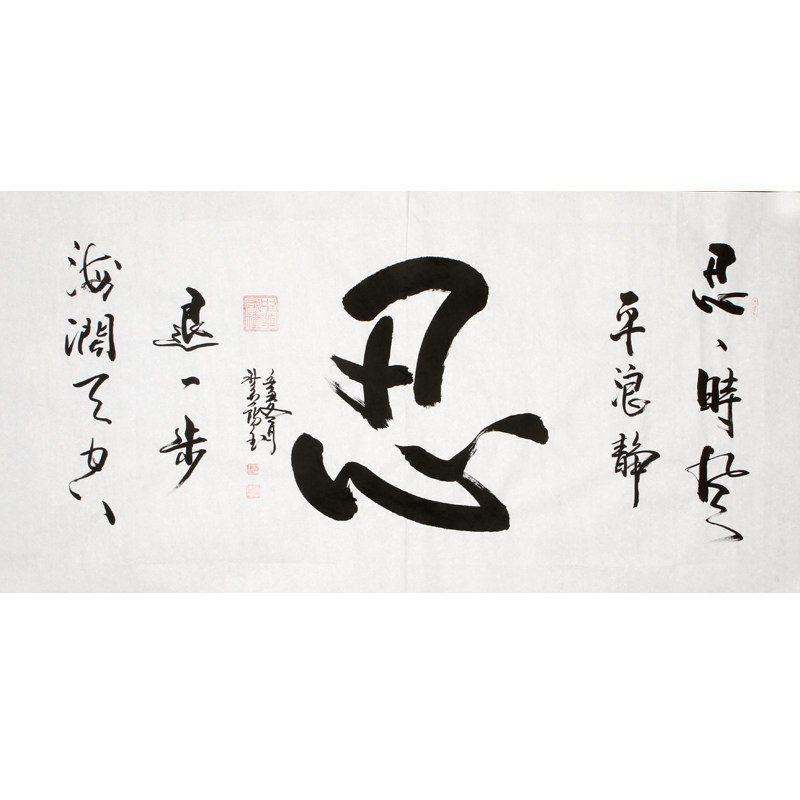 忍一時风
平浪靜
忍
退一步
海濶天空